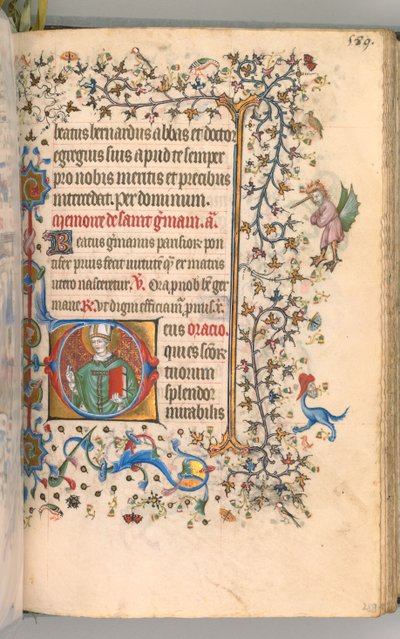 589.
beatus bernardus abbas et doctor
egregius suis apud te semper
pro nobis meritis et precibus
intercedat. Per dominum.
Memoire de saint gm̃ain. a᷑.
Beatus gm̃anus parisior pon
tifex prius fecit virtutem q̃ er matris
utero nasceretur. V̷. Ora pro nob̃ bẽ ger
mane. R̷. Vt digni efficiam᷑. p̃mis. x̃.
eus oracio.
qui es scõr
tuorum
splendor
mirabilis